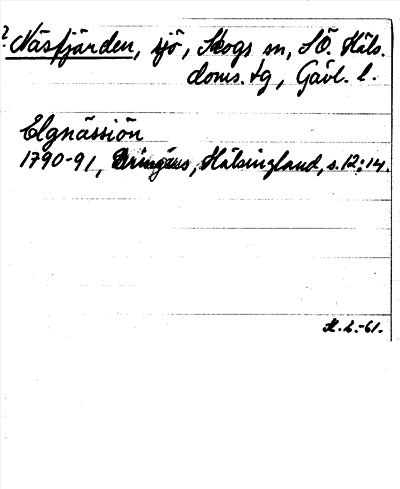 ? Näsfjärden, sjö, Skogs sn, SÖ. Häls.
doms. tg, Gävl. l.
Elgnässiön
1790-91, Bringéus, Hälsingland, s. 12; 14.
H. L. -61.